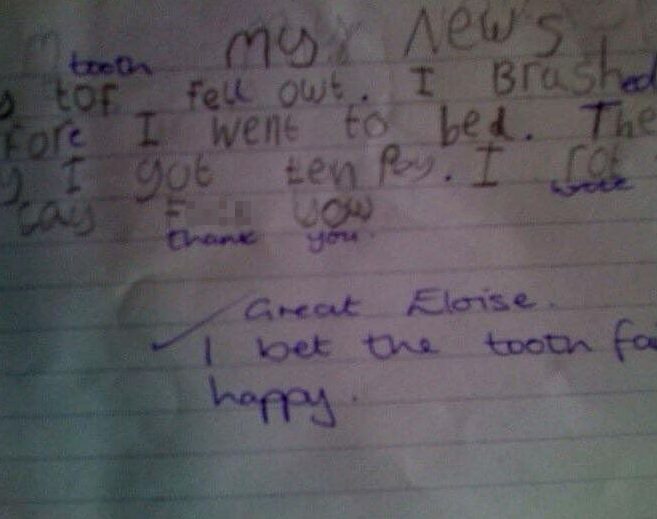 my News
tooth
tof fell owt. I Brashed
fore I went to bed. The
y I got ten Pay. I rot
wrote
tay F yow
thank you.
Great Eloise.
I bet the tooth fa
happy.